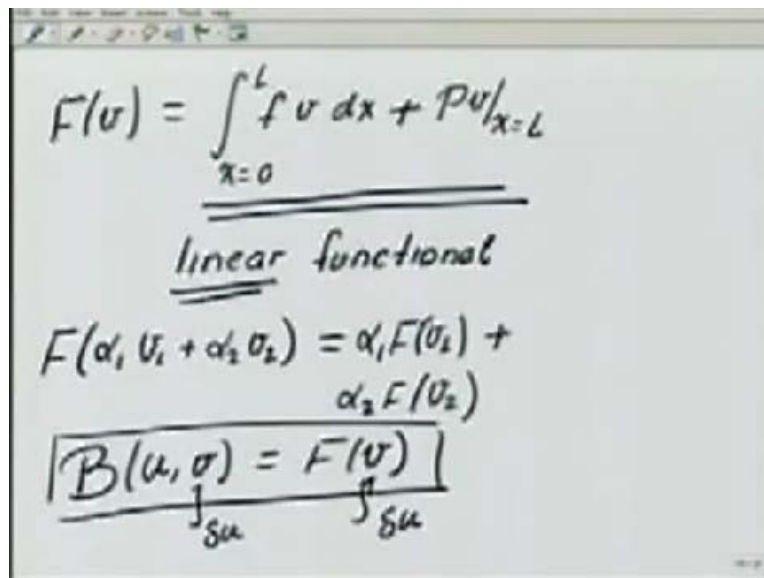 F(v) = ∫_{x=0}^{L} f v dx + Pv|_{x=L}
linear functional
F(α₁ v₁ + α₂ v₂) = α₁F(v₁) +
α₂ F(v₂)
B(u, v) = F(v)
δu δu